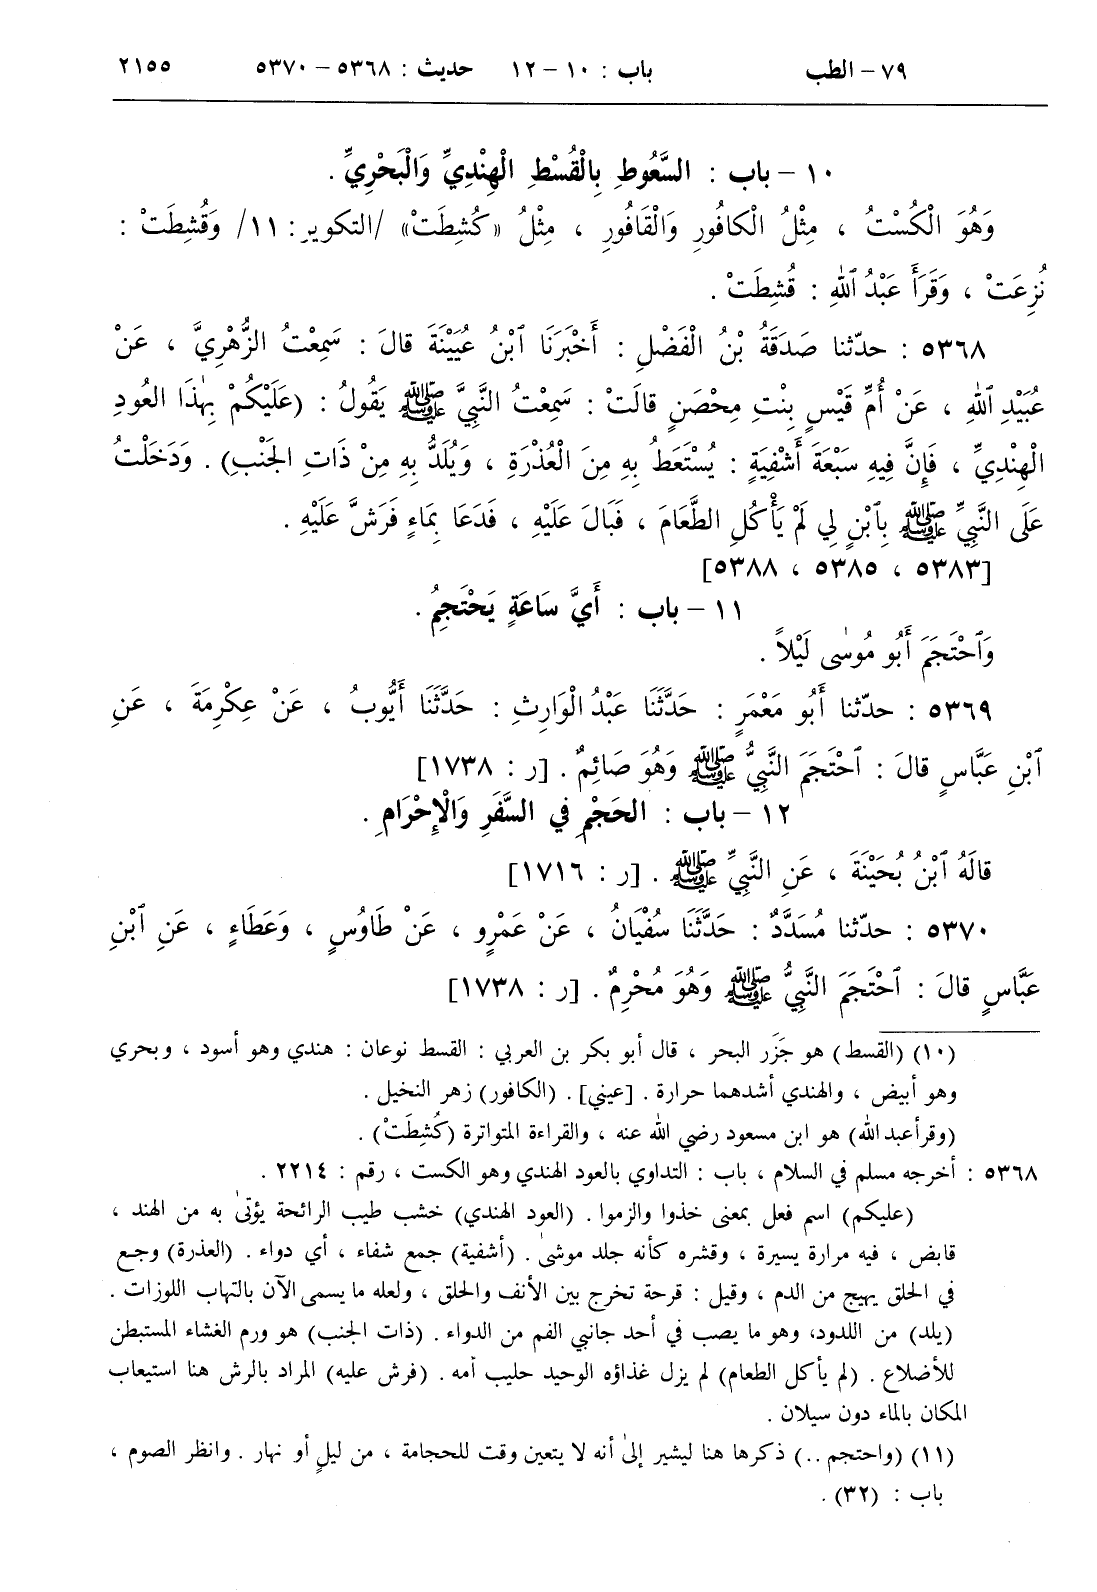 ٧٩ – الطب باب : ١٠ – ١٢ حديث : ٥٣٦٨ – ٥٣٧٠ ٢١٥٥
١٠ – باب : السَّعُوطِ بِالْقُسْطِ الْهِنْدِيِّ وَالْبَحْرِيِّ .
وَهُوَ الْكُسْتُ ، مِثْلُ الْكافُورِ وَالْقَافُورِ ، مِثْلُ «كُشِطَتْ» /التكوير: ١١/ وَقُشِطَتْ :
نُزِعَتْ ، وَقَرَأَ عَبْدُ ٱللهِ : قُشِطَتْ .
٥٣٦٨ : حدّثنا صَدَقَةُ بْنُ الْفَضْلِ : أَخْبَرَنَا ٱبْنُ عُيَيْنَةَ قالَ : سَمِعْتُ الزُّهْرِيَّ ، عَنْ
عُبَيْدِ ٱللهِ ، عَنْ أُمِّ قَيْسٍ بِنْتِ مِحْصَنٍ قالَتْ : سَمِعْتُ النَّبِيَّ ﷺ يَقُولُ : (عَلَيْكُمْ بِهٰذَا العُودِ
الْهِنْدِيِّ ، فَإِنَّ فِيهِ سَبْعَةَ أَشْفِيَةٍ : يُسْتَعَطُ بِهِ مِنَ الْعُذْرَةِ ، وَيُلَدُّ بِهِ مِنْ ذَاتِ الجَنْبِ) . وَدَخَلْتُ
عَلَى النَّبِيِّ ﷺ بِٱبْنٍ لِي لَمْ يَأْكُلِ الطَّعَامَ ، فَبَالَ عَلَيْهِ ، فَدَعَا بِمَاءٍ فَرَشَّ عَلَيْهِ .
[٥٣٨٣ ، ٥٣٨٥ ، ٥٣٨٨]
١١ – باب : أَيَّ سَاعَةٍ يَحْتَجِمُ .
وَٱحْتَجَمَ أَبُو مُوسٰى لَيْلاً .
٥٣٦٩ : حدّثنا أَبُو مَعْمَرٍ : حَدَّثَنَا عَبْدُ الْوَارِثِ : حَدَّثَنَا أَيُّوبُ ، عَنْ عِكْرِمَةَ ، عَنِ
ٱبْنِ عَبَّاسٍ قالَ : ٱحْتَجَمَ النَّبِيُّ ﷺ وَهُوَ صَائِمٌ . [ر : ١٧٣٨]
١٢ – باب : الحَجْمِ فِي السَّفَرِ وَالْإِحْرَامِ .
قالَهُ ٱبْنُ بُحَيْنَةَ ، عَنِ النَّبِيِّ ﷺ . [ر : ١٧١٦]
٥٣٧٠ : حدّثنا مُسَدَّدٌ : حَدَّثَنَا سُفْيَانُ ، عَنْ عَمْرٍو ، عَنْ طَاوُسٍ ، وَعَطَاءٍ ، عَنِ ٱبْنِ
عَبَّاسٍ قالَ : ٱحْتَجَمَ النَّبِيُّ ﷺ وَهُوَ مُحْرِمٌ . [ر : ١٧٣٨]
(١٠) (القسط) هو جَزَر البحر ، قال أبو بكر بن العربي : القسط نوعان : هندي وهو أسود ، وبحري
وهو أبيض ، والهندي أشدهما حرارة . [عيني] . (الكافور) زهر النخيل .
(وقرأ عبد الله) هو ابن مسعود رضي الله عنه ، والقراءة المتواترة (كُشِطَتْ) .
٥٣٦٨ : أخرجه مسلم في السلام ، باب : التداوي بالعود الهندي وهو الكست ، رقم : ٢٢١٤ .
(عليكم) اسم فعل بمعنى خذوا والزموا . (العود الهندي) خشب طيب الرائحة يؤتىٰ به من الهند ،
قابض ، فيه مرارة يسيرة ، وقشره كأنه جلد موشىٰ . (أشفية) جمع شفاء ، أي دواء . (العذرة) وجع
في الحلق يهيج من الدم ، وقيل : قرحة تخرج بين الأنف والحلق ، ولعله ما يسمى الآن بالتهاب اللوزات .
(يلد) من اللدود، وهو ما يصب في أحد جانبي الفم من الدواء . (ذات الجنب) هو ورم الغشاء المستبطن
للأضلاع . (لم يأكل الطعام) لم يزل غذاؤه الوحيد حليب أمه . (فرش عليه) المراد بالرش هنا استيعاب
المكان بالماء دون سيلان .
(١١) (واحتجم ..) ذكرها هنا ليشير إلىٰ أنه لا يتعين وقت للحجامة ، من ليلٍ أو نهار . وانظر الصوم ،
باب : (٣٢) .